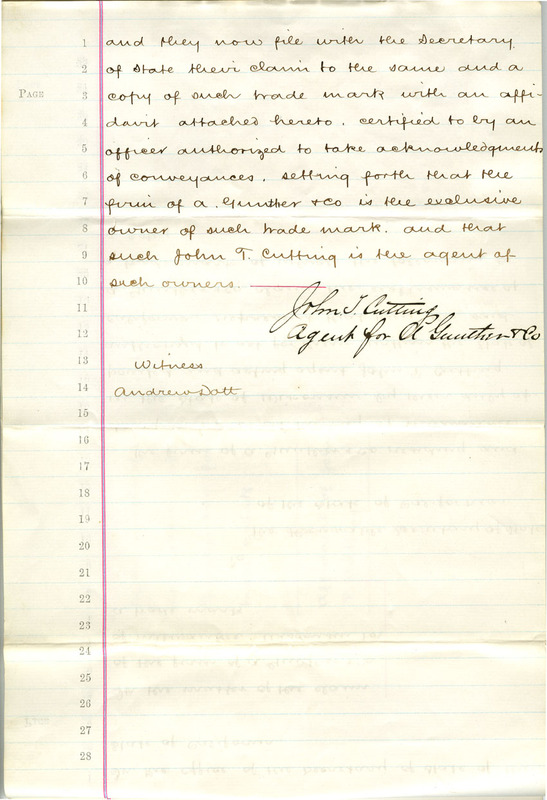 1 and they now file with the Secretary
2 of State their claim to the same and a
PAGE 3 copy of such trade mark with an affi-
4 davit attached hereto. certified to by an
5 officer authorized to take acknowledgments
6 of conveyances. setting forth that the
7 firm of A. Gunther & Co is the exclusive
8 owner of such trade mark. and that
9 such John T. Cutting is the agent of
10 such owners.
11 John T. Cutting
12 Agent for A Gunther & Co
13 Witness
14 Andrew Dott
15
16
17
18
19
20
21
22
23
24
25
26
27
28